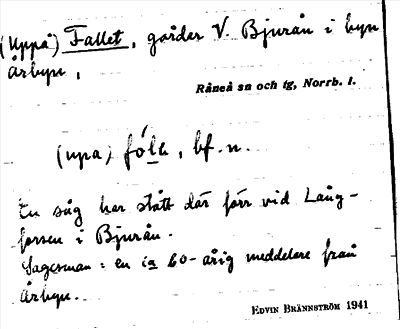 (Uppå) Fallet, gårdar V. Bjurån i byn
Årbyn,
Råneå sn och tg, Norrb. l.
(upa) fólę, bf. n.
En såg har stått där förr vid Lång-
forsen i Bjurån.
Sagesman: en ca 60-årig meddelare från
Årbyn.
EDVIN BRÄNNSTRÖM 1941